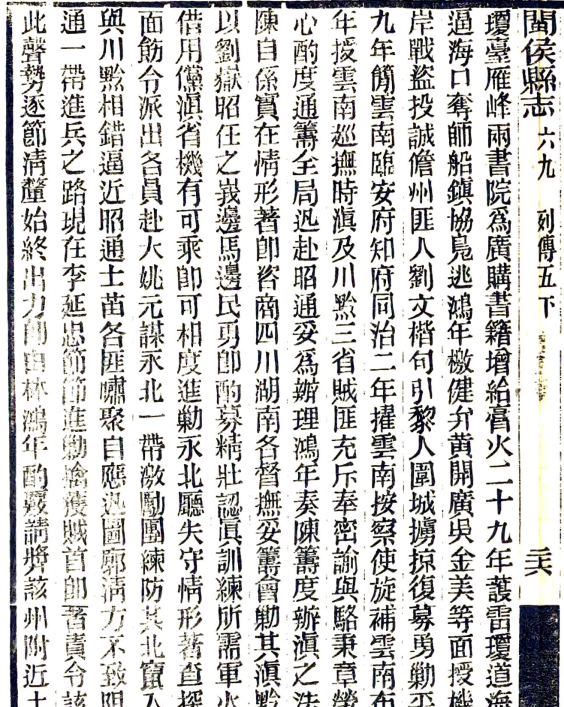 閩侯縣志 六九 列傳五下 二六
瓊臺雁峰兩書院爲廣購書籍增給膏火二十九年護雷瓊道海
逼海口奪師船鎮協晃逃鴻年檄健弁黃開廣吳金美等面授機
岸戰盜投誠儋州匪人劉文楷句引黎人圍城擄掠復募勇勦平
九年簡雲南臨安府知府同治二年擢雲南按察使旋補雲南布
年授雲南巡撫時滇及川黔三省賊匪充斥奉密諭與駱秉章
心酌度通籌全局迅赴昭通妥爲辦理鴻年奏陳籌度辦滇之法
陳自係實在情形著卽咨商四川湖南各督撫妥籌會勦其滇黔
以劉嶽昭任之峩邊馬邊民勇卽酌募精壯認眞訓練所需軍火
借用儻滇省機有可乘卽可相度進勦永北廳失守情形著查探
面飭令派出各員赴大姚元謀永北一帶激勵團練防其北竄入
與川黔相錯逼近昭通土苗各匪嘯聚自應迅圖廓清方不致阻
通一帶進兵之路現在李延忠節節進勦擒獲賊首卽著責令該
此聲勢逐節清釐始終出力卽由林鴻年酌覈請將該州附近土